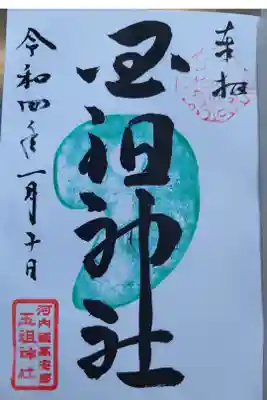 奉拝
玉祖神社
令和四年一月十日
河内國高安
玉祖神社